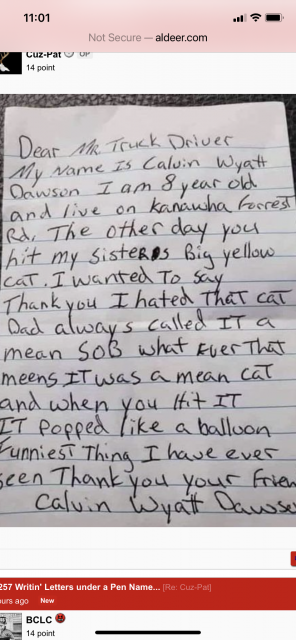 11:01
Not Secure — aldeer.com
Cuz-Pat OP
14 point
Dear Mr. Truck Driver
My Name Is Calvin Wyatt
Dawson I am 8 year old
and live on Kanawha Forrest
Rd. The other day you
hit my Sisters Big yellow
cat. I wanted To say
Thank you I hated That cat
Dad always called IT a
mean SOB what Ever That
meens IT was a mean cat
and when you Hit IT
IT Popped like a balloon
Funniest Thing I have ever
seen Thank you your Frien
Calvin Wyatt Dawso
257 Writin' Letters under a Pen Name... [Re: Cuz-Pat]
ours ago New
BCLC
14 point